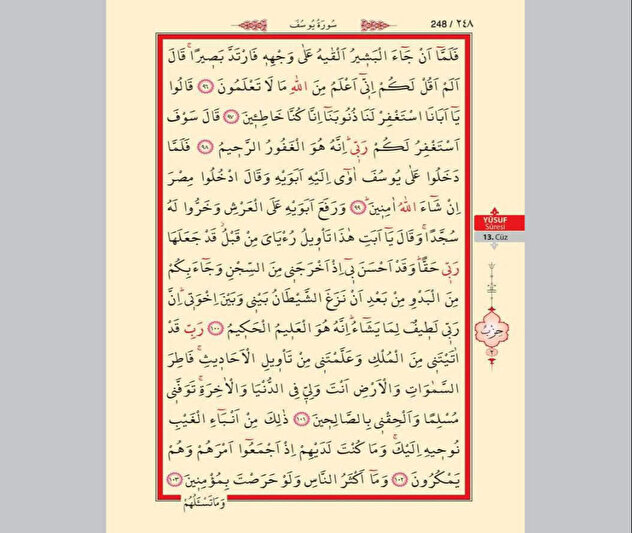 سُورَةُ يُوسُفَ
248 / ٢٤٨
فَلَمَّٓا اَنْ جَٓاءَ الْبَش۪يرُ اَلْقٰيهُ عَلٰى وَجْهِه۪ فَارْتَدَّ بَص۪يرًاۚ قَالَ
اَلَمْ اَقُلْ لَكُمْ اِنّ۪ٓي اَعْلَمُ مِنَ اللّٰهِ مَا لَا تَعْلَمُونَ ﴿٩٦﴾ قَالُوا
يَٓا اَبَانَا اسْتَغْفِرْ لَنَا ذُنُوبَنَٓا اِنَّا كُنَّا خَاطِـ۪ٔينَ ﴿٩٧﴾ قَالَ سَوْفَ
اَسْتَغْفِرُ لَكُمْ رَبّ۪يۜ اِنَّهُ هُوَ الْغَفُورُ الرَّح۪يمُ ﴿٩٨﴾ فَلَمَّا
دَخَلُوا عَلٰى يُوسُفَ اٰوٰٓى اِلَيْهِ اَبَوَيْهِ وَقَالَ ادْخُلُوا مِصْرَ
اِنْ شَٓاءَ اللّٰهُ اٰمِن۪ينَۜ ﴿٩٩﴾ وَرَفَعَ اَبَوَيْهِ عَلَى الْعَرْشِ وَخَرُّوا لَهُ
سُجَّدًاۚ وَقَالَ يَٓا اَبَتِ هٰذَا تَأْو۪يلُ رُءْيَايَ مِنْ قَبْلُۘ قَدْ جَعَلَهَا
رَبّ۪ي حَقًّاۜ وَقَدْ اَحْسَنَ ب۪ٓي اِذْ اَخْرَجَن۪ي مِنَ السِّجْنِ وَجَٓاءَ بِكُمْ
مِنَ الْبَدْوِ مِنْ بَعْدِ اَنْ نَزَغَ الشَّيْطَانُ بَيْن۪ي وَبَيْنَ اِخْوَت۪يۜ اِنَّ
رَبّ۪ي لَط۪يفٌ لِمَا يَشَٓاءُۜ اِنَّهُ هُوَ الْعَل۪يمُ الْحَك۪يمُ ﴿١٠٠﴾ رَبِّ قَدْ
اٰتَيْتَن۪ي مِنَ الْمُلْكِ وَعَلَّمْتَن۪ي مِنْ تَأْو۪يلِ الْاَحَاد۪يثِۚ فَاطِرَ
السَّمٰوَاتِ وَالْاَرْضِ اَنْتَ وَلِيّ۪ فِي الدُّنْيَا وَالْاٰخِرَةِۚ تَوَفَّن۪ي
مُسْلِمًا وَاَلْحِقْن۪ي بِالصَّالِح۪ينَ ﴿١٠١﴾ ذٰلِكَ مِنْ اَنْبَٓاءِ الْغَيْبِ
نُوح۪يهِ اِلَيْكَۚ وَمَا كُنْتَ لَدَيْهِمْ اِذْ اَجْمَعُٓوا اَمْرَهُمْ وَهُمْ
يَمْكُرُونَ ﴿١٠٢﴾ وَمَٓا اَكْثَرُ النَّاسِ وَلَوْ حَرَصْتَ بِمُؤْمِن۪ينَ ﴿١٠٣﴾
وَمَا تَسْـَٔلُهُمْ
YÛSUF
Sûresi
13. Cüz
حزب
٢